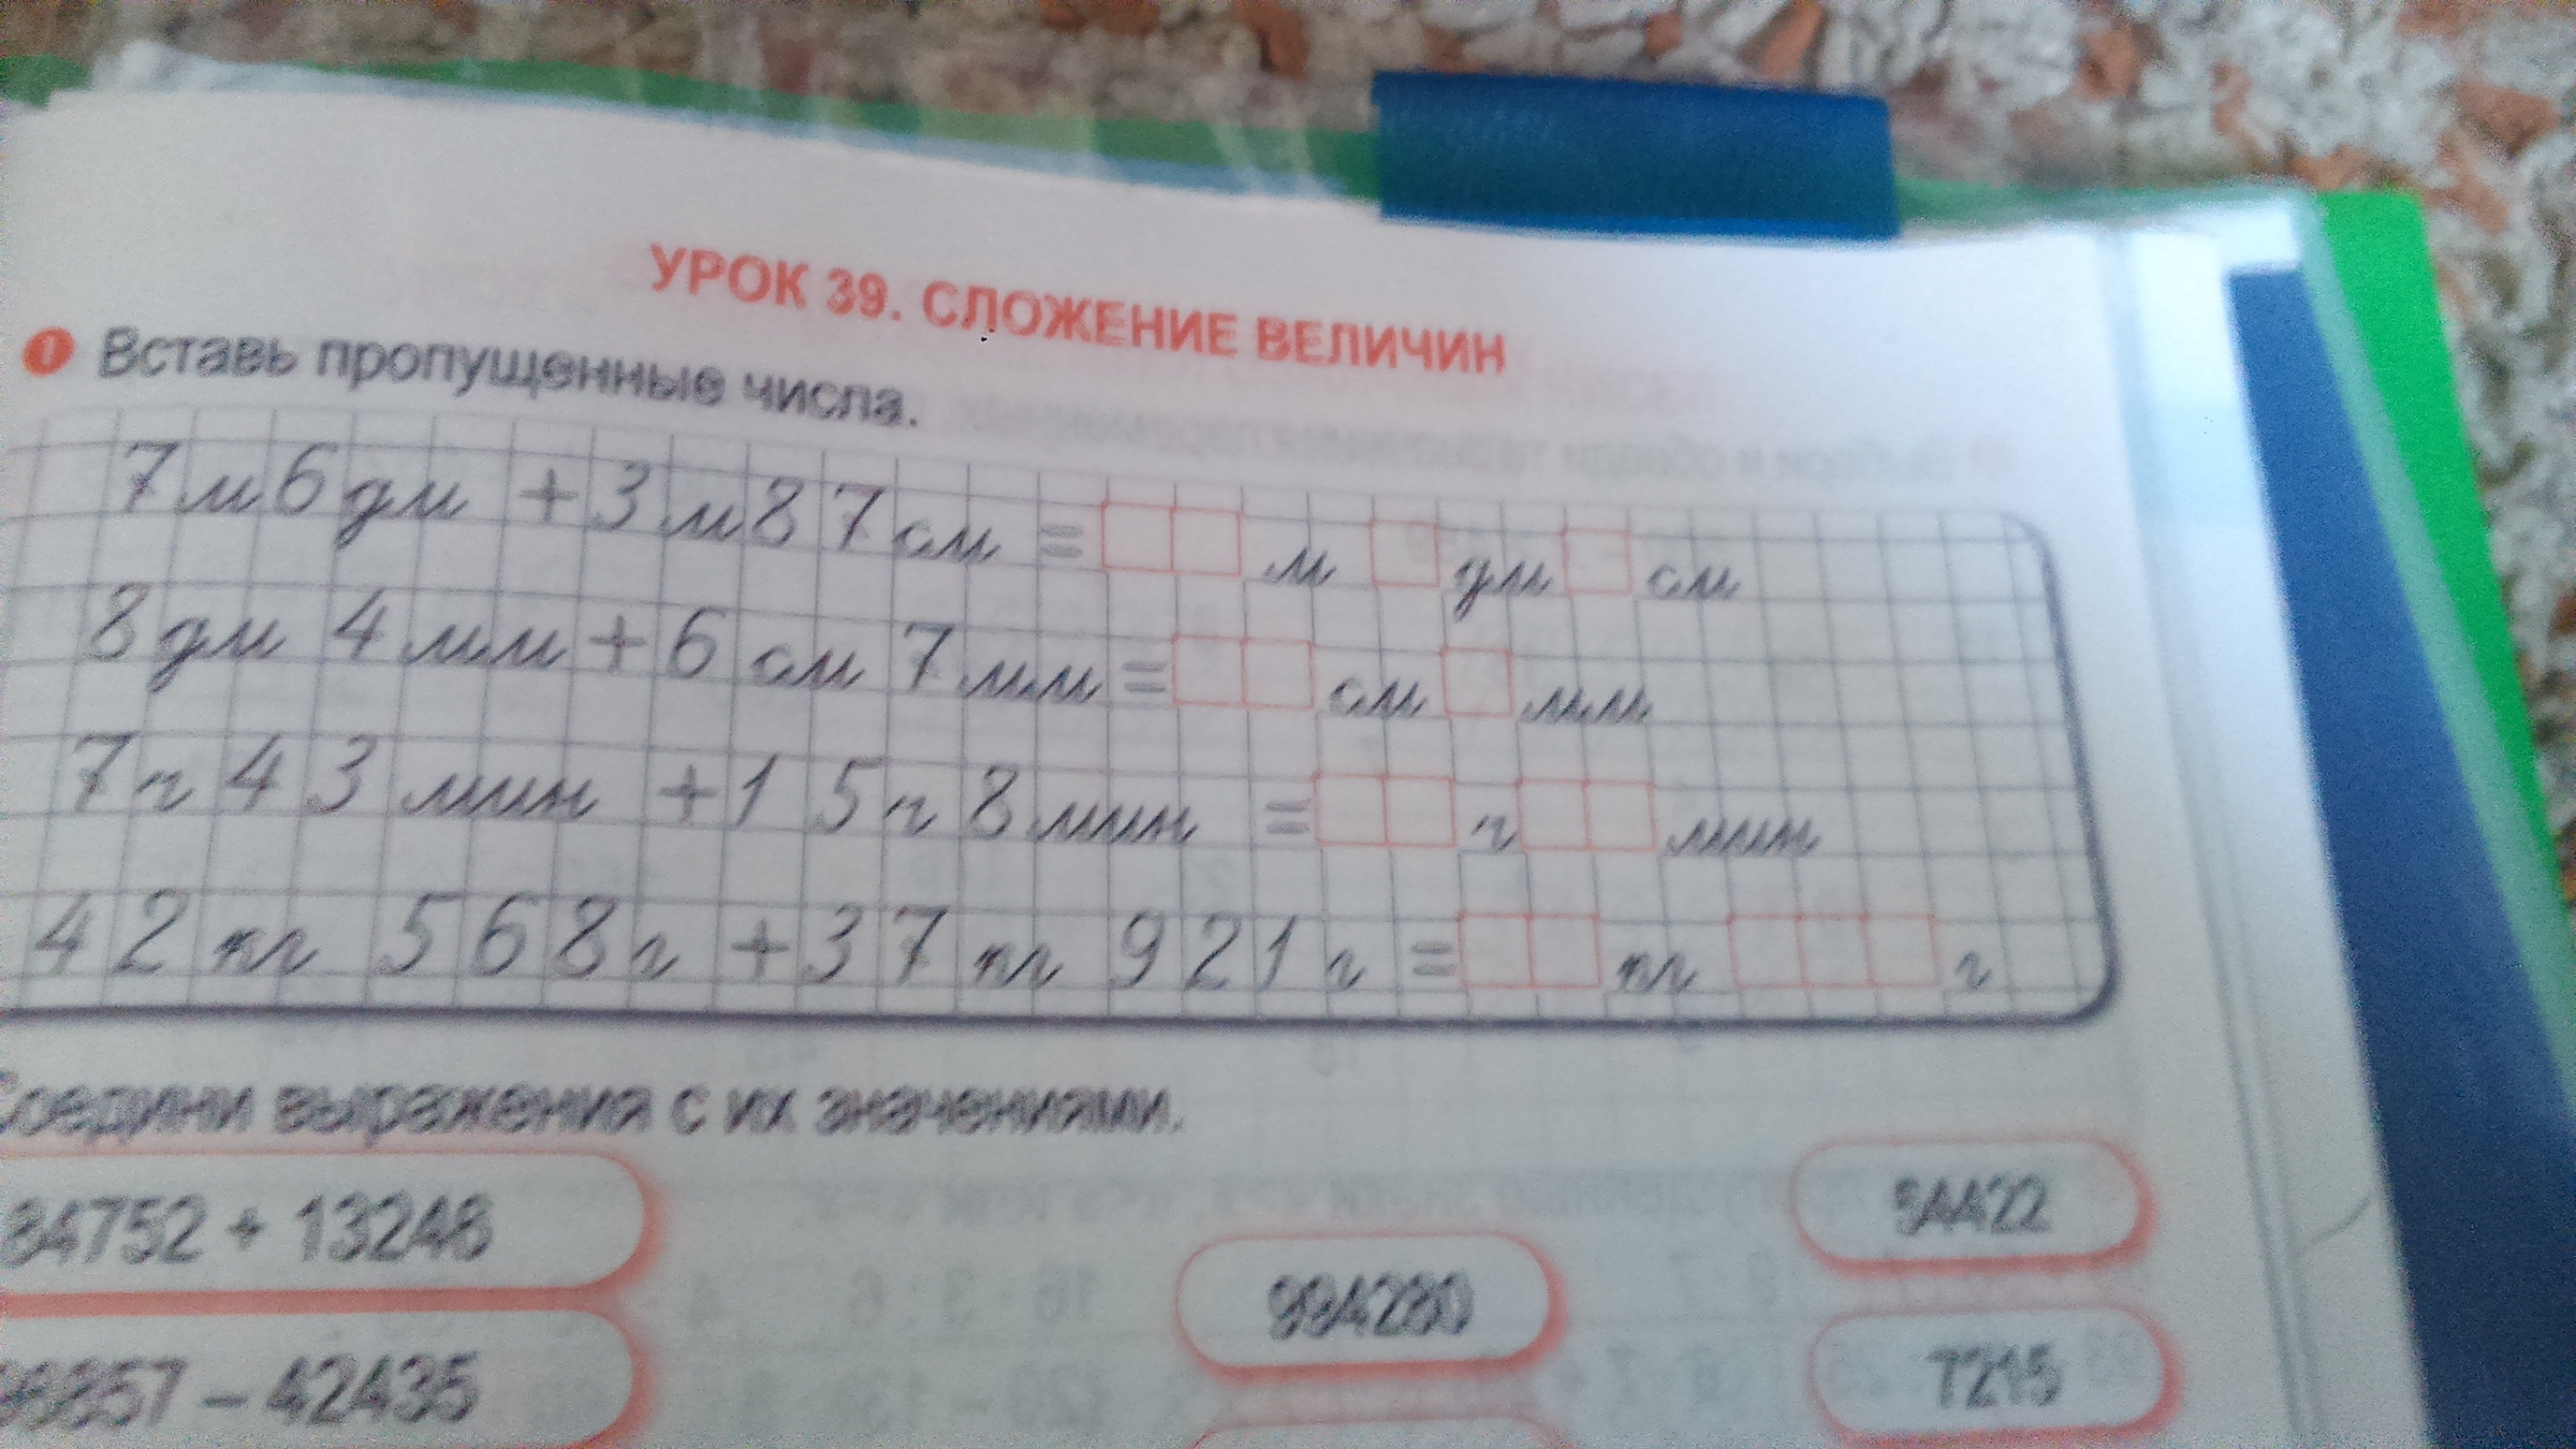 УРОК 39. СЛОЖЕНИЕ ВЕЛИЧИН
1 Вставь пропущенные числа.
7 м 6 дм + 3 м 87 см = м дм см
8 дм 4 мм + 6 см 7 мм = см мм
7 ч 43 мин + 15 ч 8 мин = ч мин
42 кг 568 г + 37 кг 921 г = кг г
Соедини выражения с их значениями.
84752 + 13248
994280
54422
98857 – 42435
7215